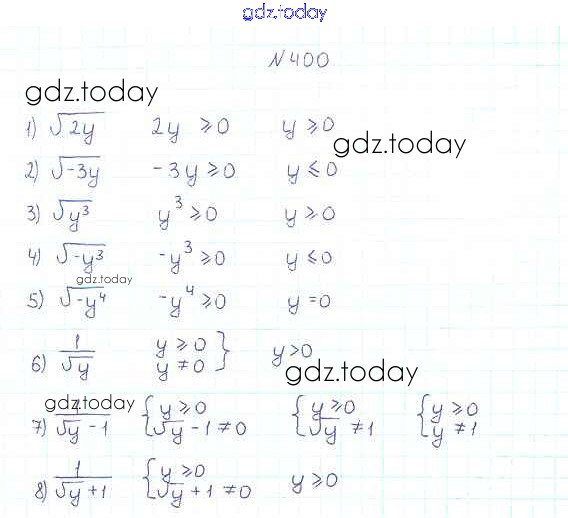 gdz.today
№ 400
gdz.today
1) √2y 2y ≥ 0 y ≥ 0
gdz.today
2) √-3y -3y ≥ 0 y ≤ 0
3) √y³ y³ ≥ 0 y ≥ 0
4) √-y³ -y³ ≥ 0 y ≤ 0
gdz.today
5) √-y⁴ -y⁴ ≥ 0 y = 0
6) 1/√y y ≥ 0 y ≠ 0 } y > 0
gdz.today
gdz.today
7) 1/(√y - 1) { y ≥ 0 √y - 1 ≠ 0 { y ≥ 0 √y ≠ 1 { y ≥ 0 y ≠ 1
8) 1/(√y + 1) { y ≥ 0 √y + 1 ≠ 0 y ≥ 0